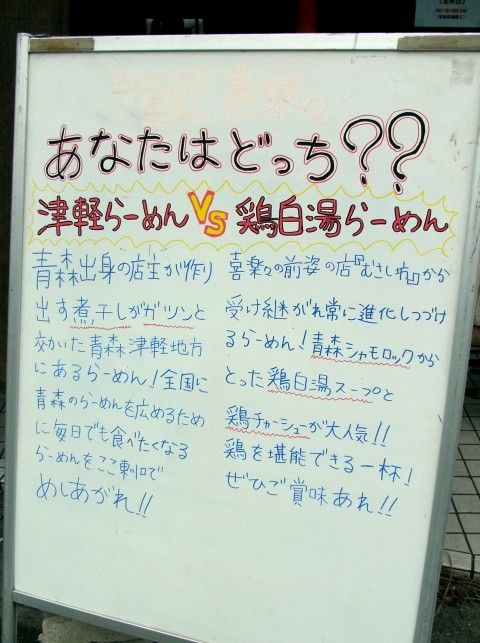 あなたはどっち??
津軽らーめん VS 鶏白湯らーめん
青森出身の店主が作り
出す煮干しがガツンと
効いた青森津軽地方
にあるらーめん!全国に
青森のらーめんを広めるため
に毎日でも食べたくなる
らーめんをここ東川口で
めしあがれ!!
喜楽々の前姿の店『むさし坊』から
受け継がれ常に進化しつづけ
るらーめん!青森シャモロックから
とった鶏白湯スープと
鶏チャーシューが大人気!!
鶏を堪能できる一杯!
ぜひご賞味あれ!!